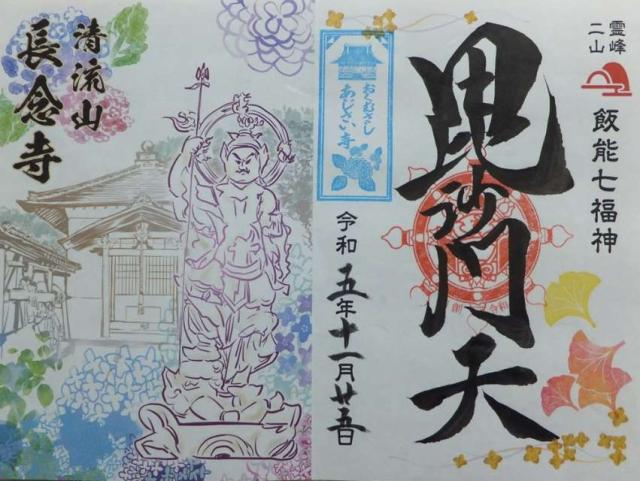 霊峰
二山
飯能七福神
毘沙門天
おくむさし
あじさい寺
令和五年十一月廿五日
清流山
長念寺